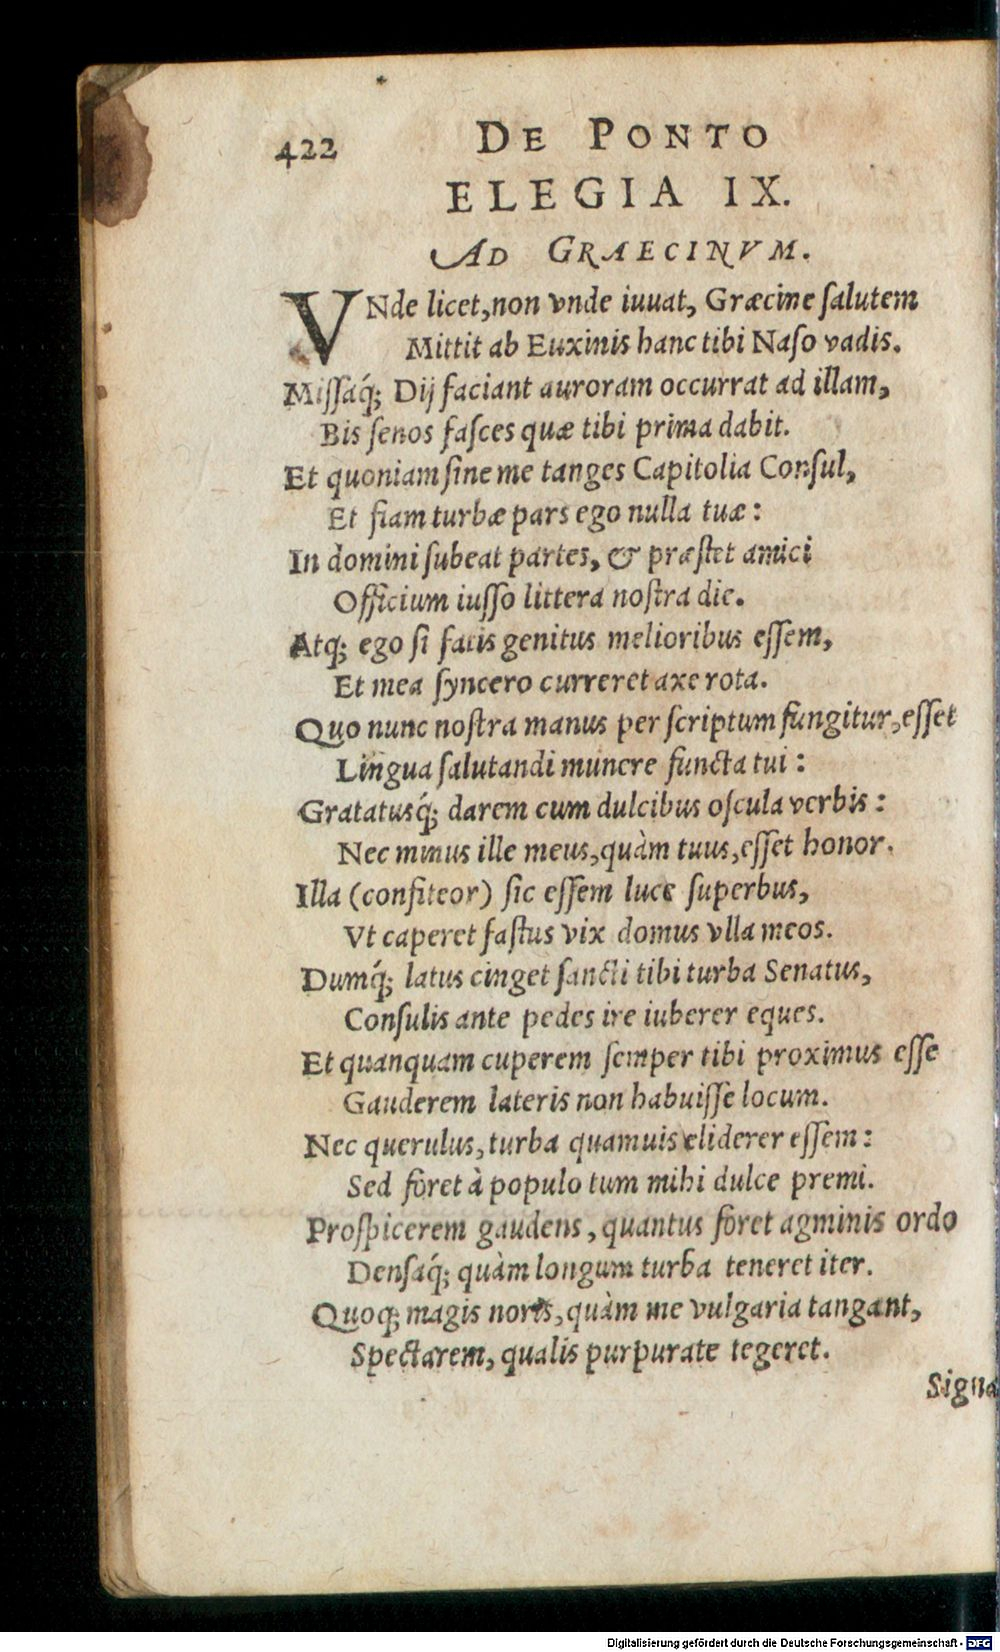 422
DE PONTO
ELEGIA IX.
AD GRAECINVM.
VNde licet, non vnde iuuat, Græcine ſalutem
Mittit ab Euxinis hanc tibi Naſo vadis.
Miſſáq́; Dij faciant auroram occurrat ad illam,
Bis ſenos faſces quæ tibi prima dabit.
Et quoniam ſine me tanges Capitolia Conſul,
Et fiam turbæ pars ego nulla tuæ:
In domini ſubeat partes, & præſtet amici
Officium iuſſo littera noſtra die.
Atq; ego ſi fatis genitus melioribus eſſem,
Et mea ſyncero curreret axe rota.
Quo nunc noſtra manus per ſcriptum fungitur, eſſet
Lingua ſalutandi munere functa tui:
Gratatusq́; darem cum dulcibus oſcula verbis:
Nec minus ille meus, quàm tuus, eſſet honor.
Illa (confiteor) ſic eſſem luce ſuperbus,
Vt caperet faſtus vix domus vlla meos.
Dumq́; latus cinget ſancti tibi turba Senatus,
Conſulis ante pedes ire iuberer eques.
Et quanquam cuperem ſemper tibi proximus eſſe
Gauderem lateris non habuiſſe locum.
Nec querulus, turba quamuis eliderer eſſem:
Sed foret à populo tum mihi dulce premi.
Proſpicerem gaudens, quantus foret agminis ordo
Denſaq́; quàm longum turba teneret iter.
Quoq; magis noris, quàm me vulgaria tangant,
Spectarem, qualis purpura te tegeret.
Signa
Digitalisierung gefördert durch die Deutsche Forschungsgemeinschaft - DFG